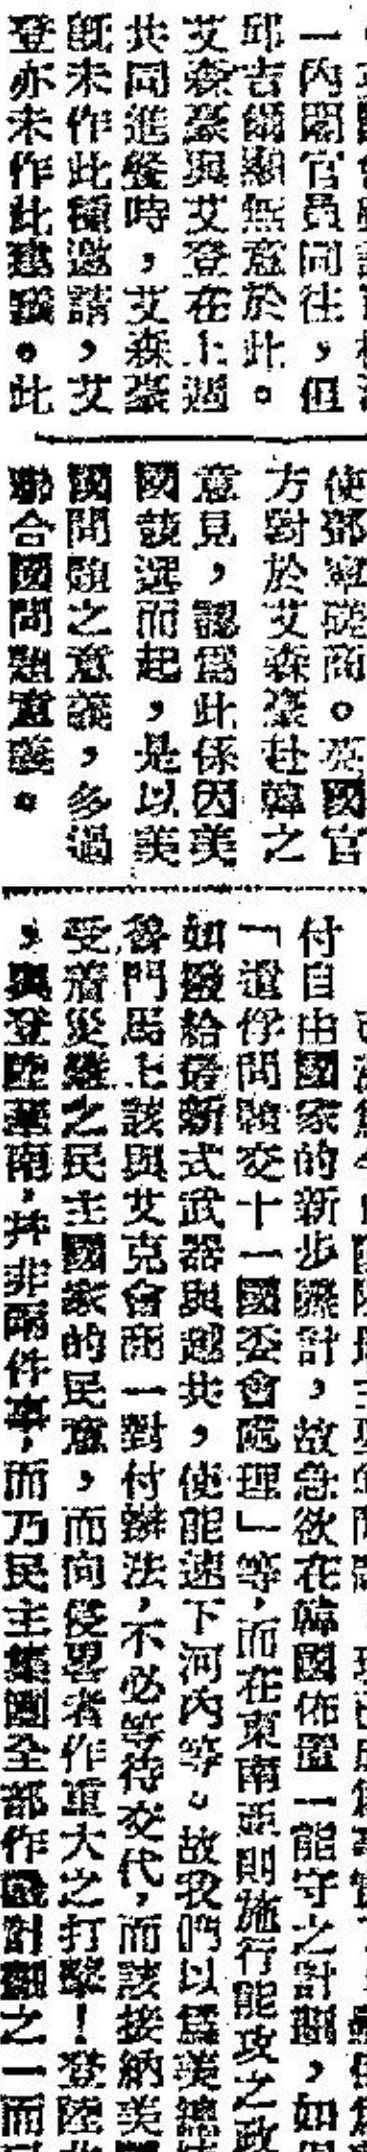 一內閣官員同往，但
邱吉爾顯無意於此。
艾森豪與艾登在上週
共同進餐時，艾森豪
旣未作此種邀請，艾
登亦未作此建議。此
使鄧寧磋商。英國官
方對於艾森豪赴韓之
意見，認爲此係因美
國競選而起，是以美
國問題之意義，多過
聯合國問題意義。
付自由國家的新步驟計，故急欲在韓國佈置一能守之計劃，如
「遣俘問題交十一國委會處理」等，而在東南亞則施行能攻之政
如撥給最新式武器與越共，使能速下河內等。故我們以爲美總
魯門馬上該與艾克會商一對付辦法，不必等待交代，而該接納美
受着災難之民主國家的民意，而向侵畧者作重大之打擊！登陸
，與登陸華南，幷非兩件事，而乃民主集團全部作戰計劃之一而